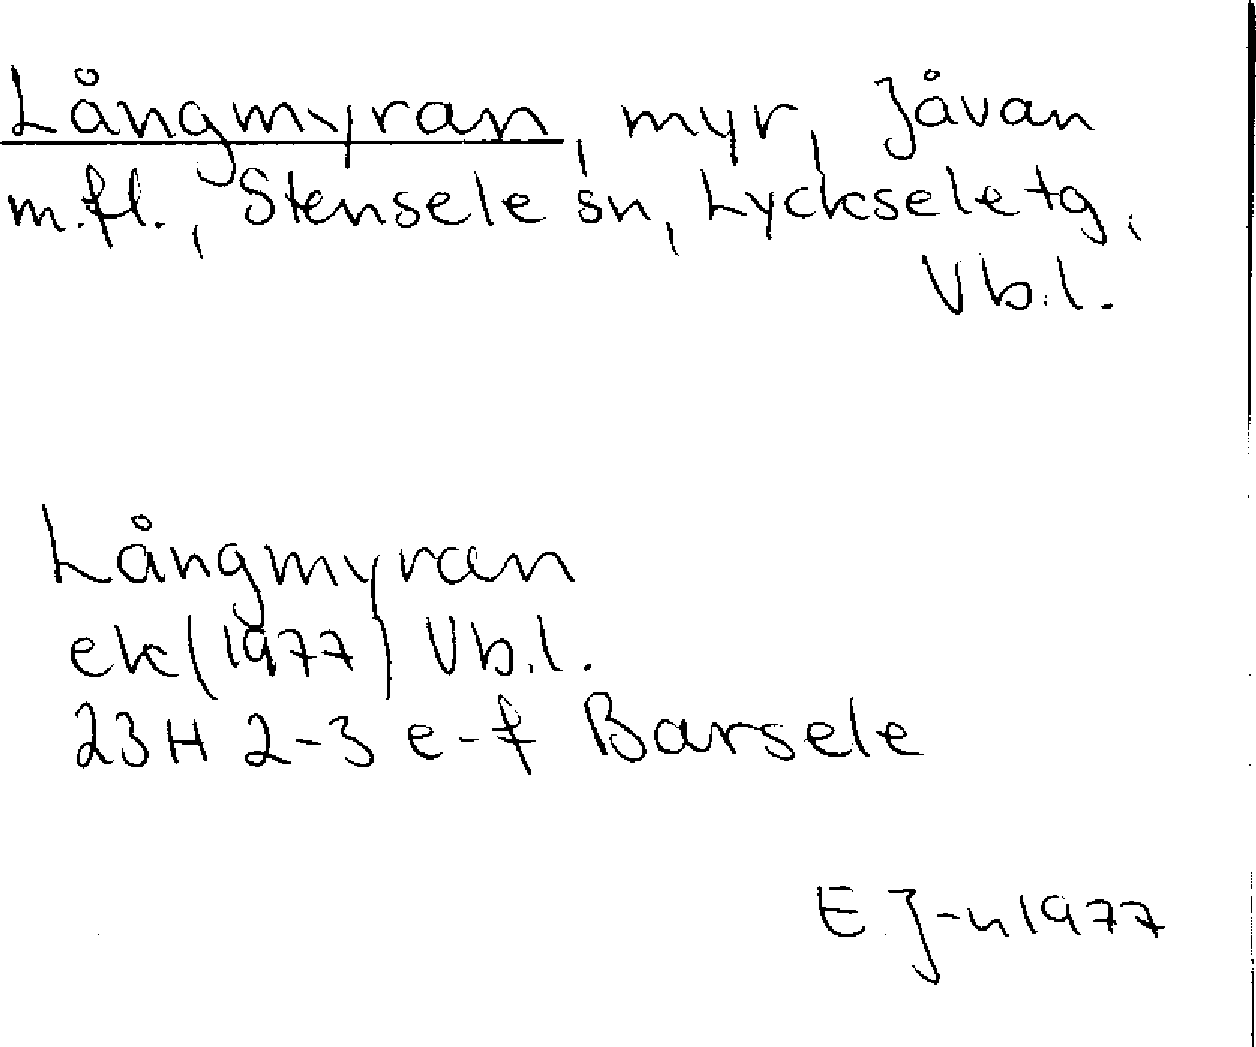 Långmyran, myr, Jåvan
m.fl., Stensele sn, Lycksele tg,
Vb.l.
Långmyran
ek(1977) Vb.l.
23H 2-3 e-f Barsele
E J-n 1977